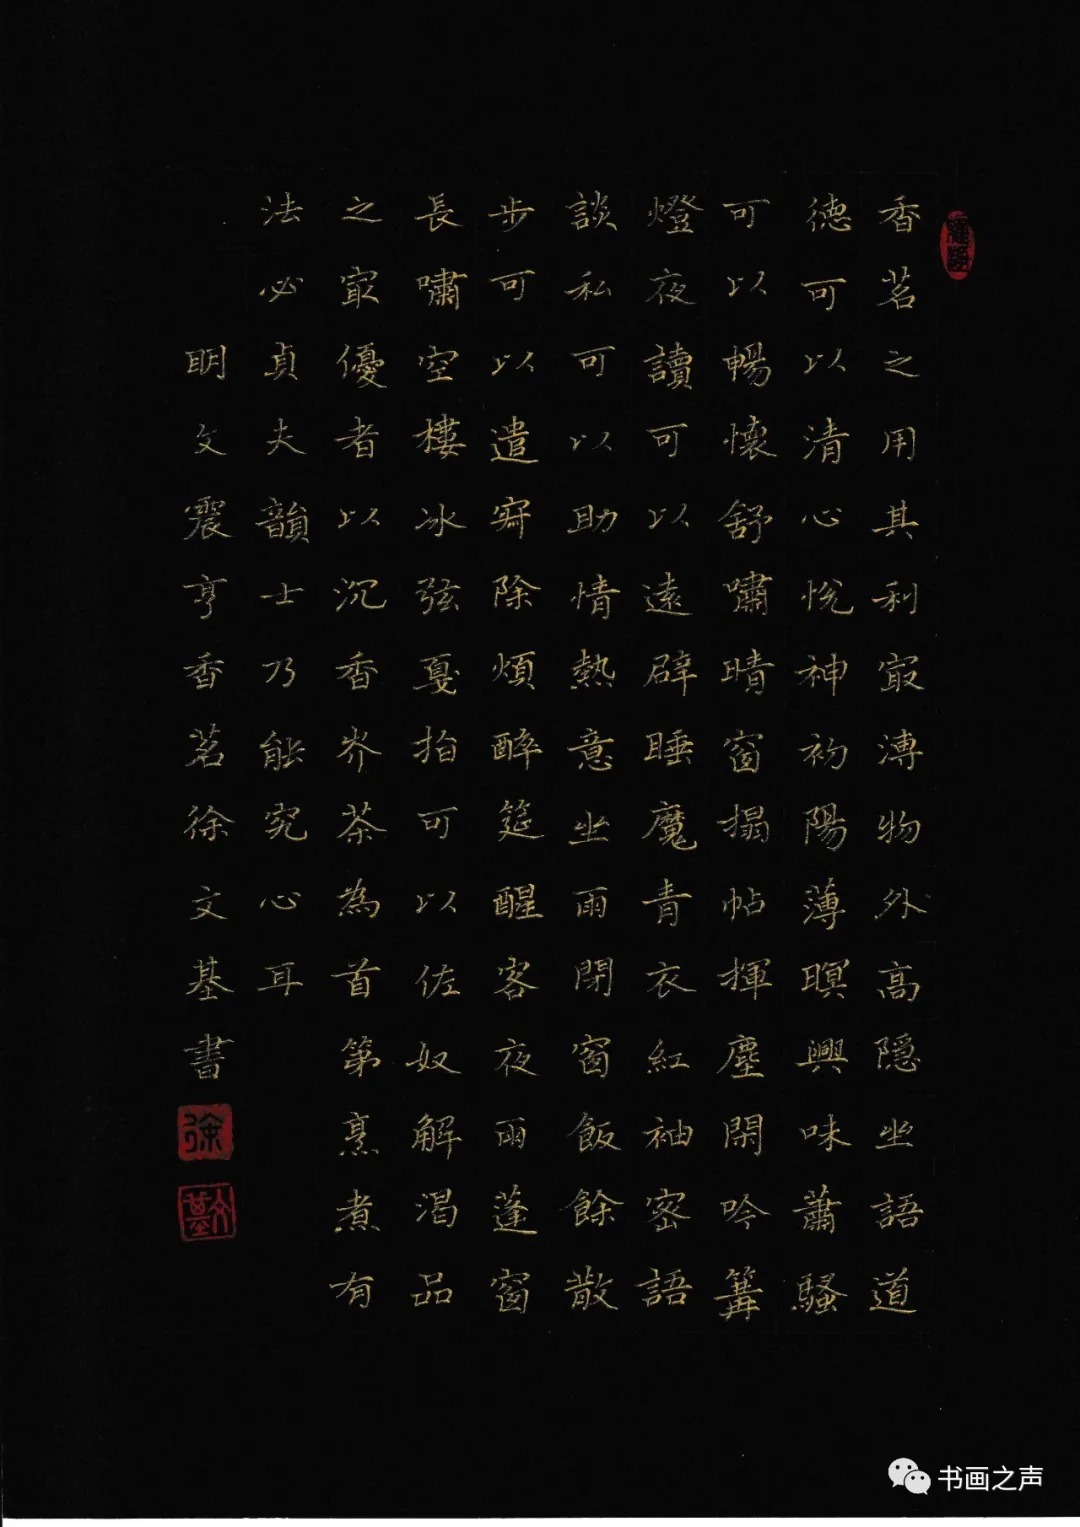 香茗之用其利㝡溥物外高隱坐語道
德可以清心悅神初陽薄暝興味蕭騷
可以暢懷舒嘯晴窗搨帖揮麈閑吟篝
燈夜讀可以遠辟睡魔青衣紅袖密語
談私可以助情熱意坐雨閉窗飯餘散
步可以遣寂除煩醉筵醒客夜雨蓬窗
長嘯空樓冰弦戛指可以佐奴解渴品
之㝡優者以沉香岕茶為首第烹煮有
法必貞夫韻士乃能究心耳
明文震亨香茗徐文基書
徐
文基
书画之声